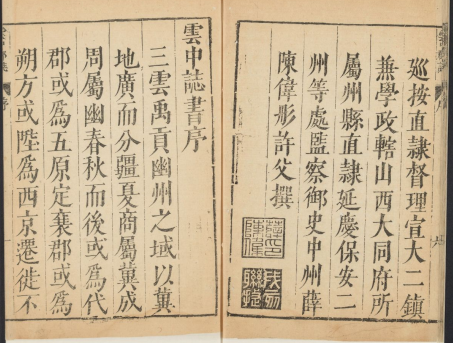 廵按直隷督理宣大二鎮
兼學政轄山西大同府所
屬州縣直隷延慶保安二
州等處監察御史中州薛
陳偉彤許父撰
薛印陳偉
雲中誌書序
三雲禹貢幽州之域以冀
地廣而分疆夏商屬冀成
周屬幽春秋而後或爲代
郡或爲五原定襄郡或爲
朔方或陞爲西京遷徙不